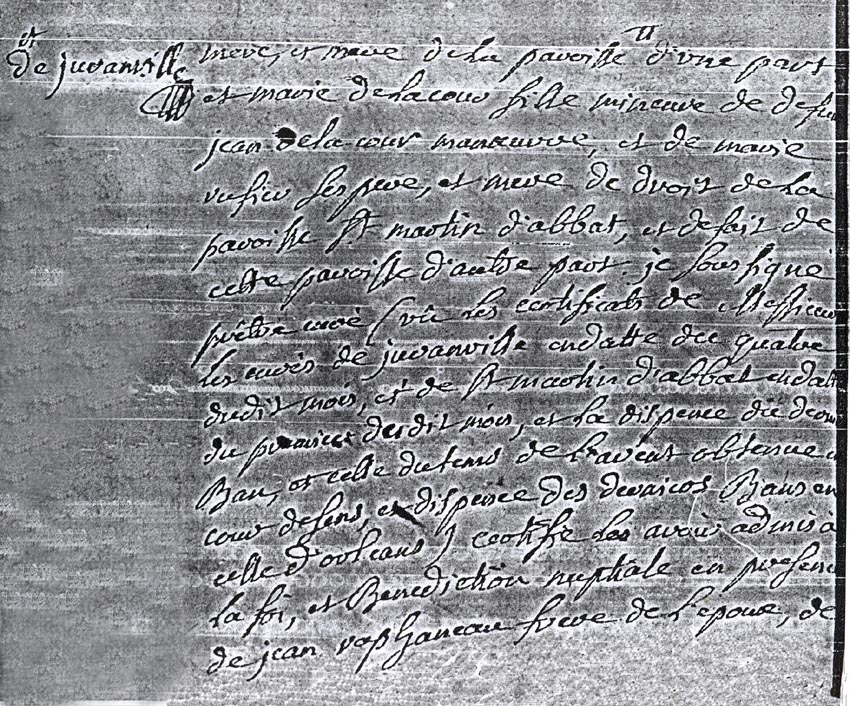 st
de juvanville
mere, et mere de la paroisse d'une part
et marie delacour fille mineure de defu
jean delacour manœuvre, et de marie
ses pere, et mere de droit de la
paroisse st martin d'abbat, et defait de
cette paroisse d'autre part. je soussigné
prêtre curé (vû les certificats de Messieurs
les curés de juvanville endatte du quatre
dudit mois, et de st martin d'abbat endatte
du premier dudit mois, et la dispence du
Ban, et celle dutems de l'avent obtenue
cour desens, et dispence des derniers Bans en
celle d'orleans) certifie les avoir admis à
la foi, et Benediction nuptiale en presence
de jean raphaneau frere de l'epoux, de